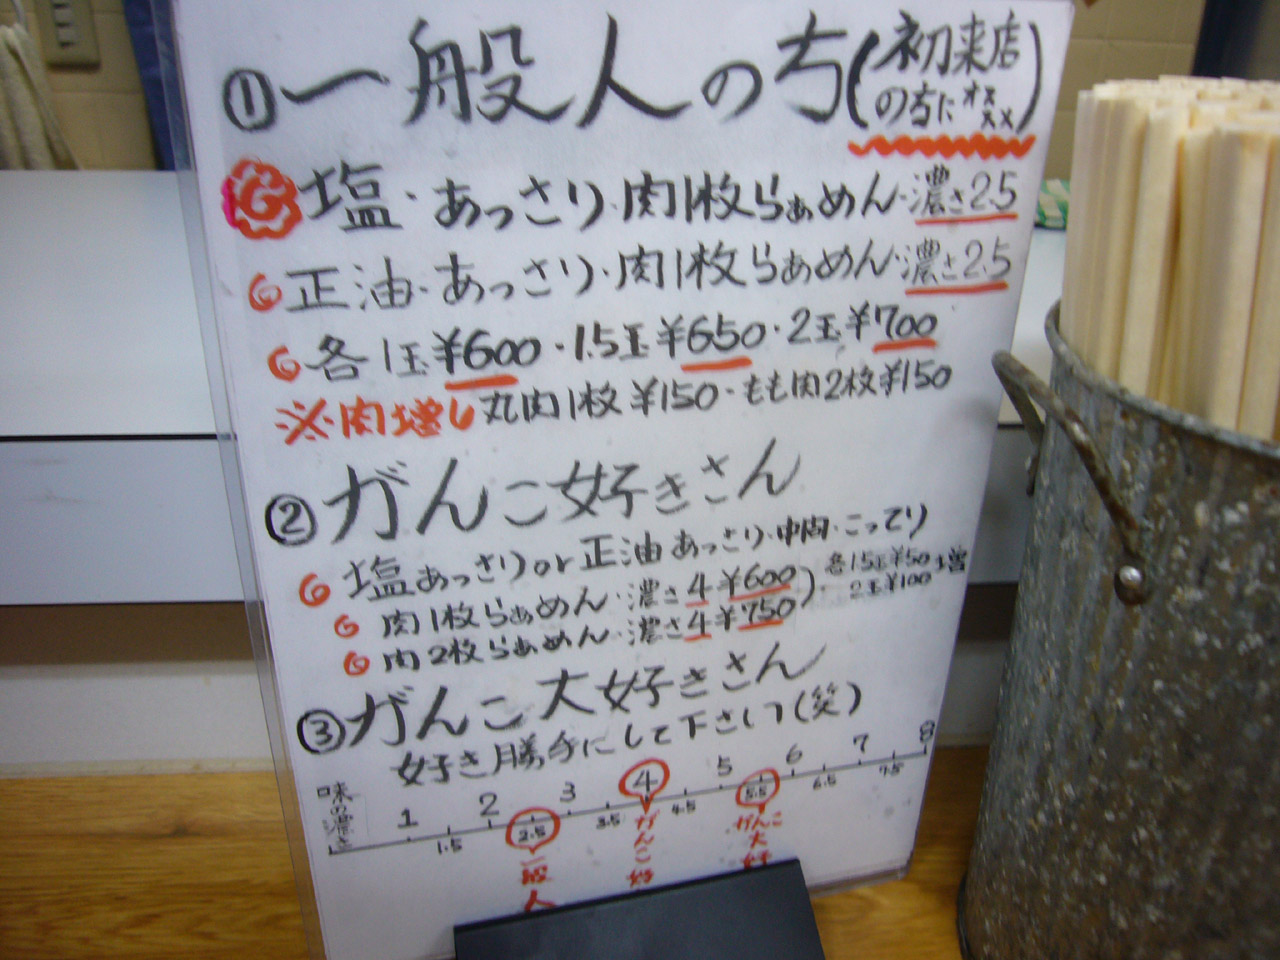 ① 一般人の方(初来店の方にオススメ)
G 塩・あっさり・肉1枚らぁめん・濃さ2.5
G 正油・あっさり・肉1枚らぁめん・濃さ2.5
G 各1玉¥600・1.5玉¥650・2玉¥700
※肉増し 丸肉1枚¥150・もも肉2枚¥150
② がんこ好きさん
G 塩あっさりor正油あっさり・中間・こってり
G 肉1枚らぁめん・濃さ4¥600
G 肉2枚らぁめん・濃さ4¥750
)・各1.5玉¥50増
2玉¥100
③ がんこ大好きさん
好き勝手にして下さい(笑)
味の濃さ
1 1.5 2 2.5 3 3.5 4 4.5 5 5.5 6 6.5 7 7.5 8
一般人
がんこ好
がんこ大好